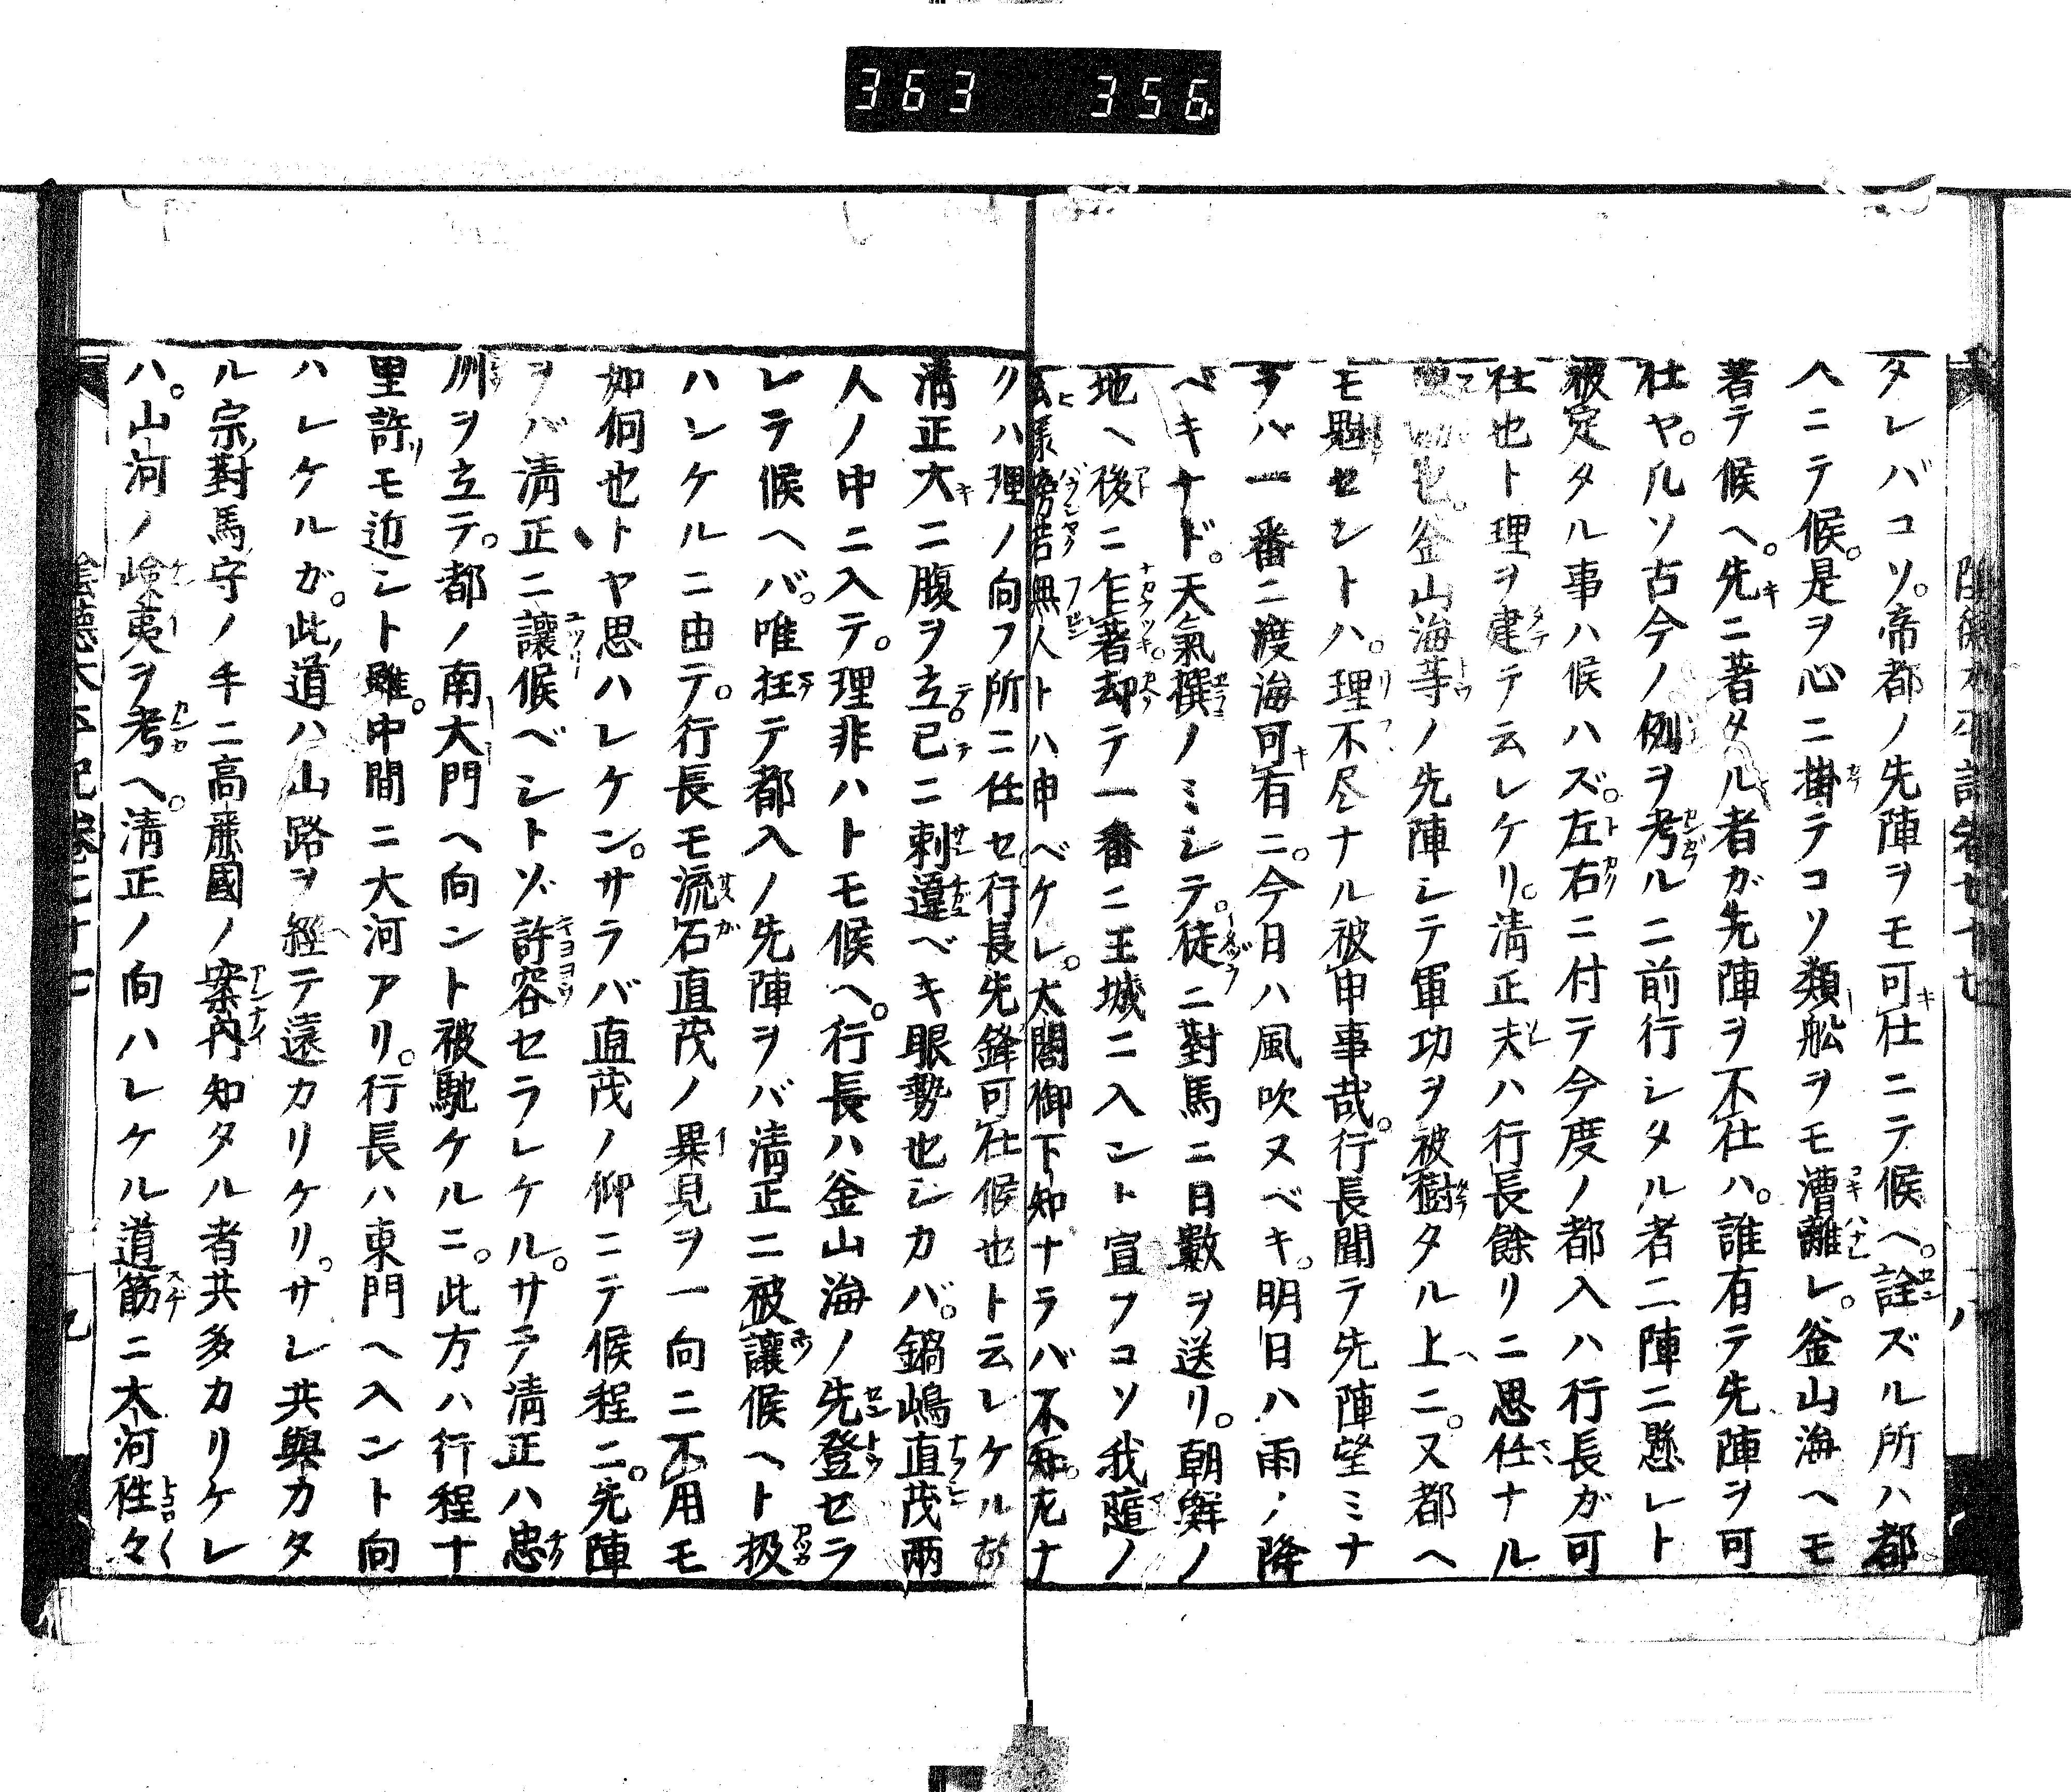 363 356
タレバコソ。帝都ノ先陣ヲモ可仕ニテ候ヘ。詮ズル所ハ都
ヘニテ候。是ヲ心ニ掛テコソ類舩ヲモ漕離レ。釜山海ヘモ
著テ候ヘ。先ニ著タル者ガ先陣ヲ不仕ハ。誰有テ先陣ヲ可
仕ヤ。凡ソ古今ノ例ヲ考ルニ前行シタル者二陣ニ懸レト
被定タル事ハ候ハズ。左右ニ付テ今度ノ都入ハ行長ガ可
仕也ト理ヲ建テ云レケリ。清正夫ハ行長餘リニ思任ナル
也。釜山海等ノ先陣シテ軍功ヲ被樹タル上ニ。又都ヘ
モ魁セントハ。理不尽ナル被申事哉。行長聞テ先陣望ミナ
ヲバ一番ニ渡海可有ニ。今日ハ風吹ヌベキ。明日ハ雨ノ降
ベキナド。天氣撰ノミシテ。徒ニ對馬ニ日數ヲ送リ。朝鮮ノ
地ヘ後ニ乍著却テ一番ニ王城ニ入ント宣フコソ我蔭ノ
云様傍若無人トハ申ベケレ。太閤御下知ナラバ不知。尤ナ
クハ理ノ向フ所ニ任セ行長先鋒可仕候也ト云レケル
清正大ニ腹ヲ立已ニ刺違ベキ眼勢也シカバ。鍋嶋直茂兩
人ノ中ニ入テ。理非ハトモ候ヘ。行長ハ釜山海ノ先登セラ
レテ候ヘバ。唯狂テ都入ノ先陣ヲバ清正ニ被讓候ヘト扱
ハンケルニ由テ。行長モ流石直茂ノ異見ヲ一向ニ不用モ
如何也トヤ思ハレケン。サラバ直茂ノ仰ニテ候程ニ。先陣
ヲバ清正ニ讓候ベシトゾ許容セラレケル。サテ清正ハ忠
州ヲ立テ。都ノ南大門ヘ向ント被馳ケルニ。此方ハ行程十
里許モ近シト雖。中間ニ大河アリ。行長ハ東門ヘ入ント向
ハレケルガ。此道ハ山路ヲ經テ遠カリケリ。サレ共與カタ
ル宗對馬守ノ手ニ高麗國ノ案内知タル者共多カリケレ
ハ。山河ノ嶮夷ヲ考ヘ。清正ノ向ハレケル道筋ニ大河徃々